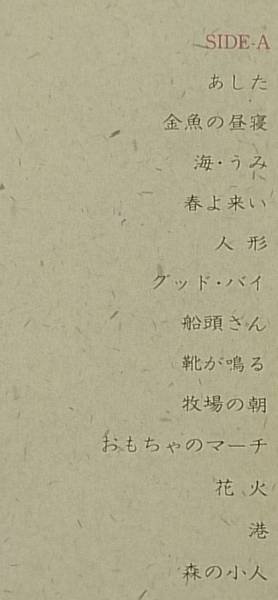 SIDE-A
あした
金魚の昼寝
海・うみ
春よ来い
人形
グッド・バイ
船頭さん
靴が鳴る
牧場の朝
おもちゃのマーチ
花火
港
森の小人